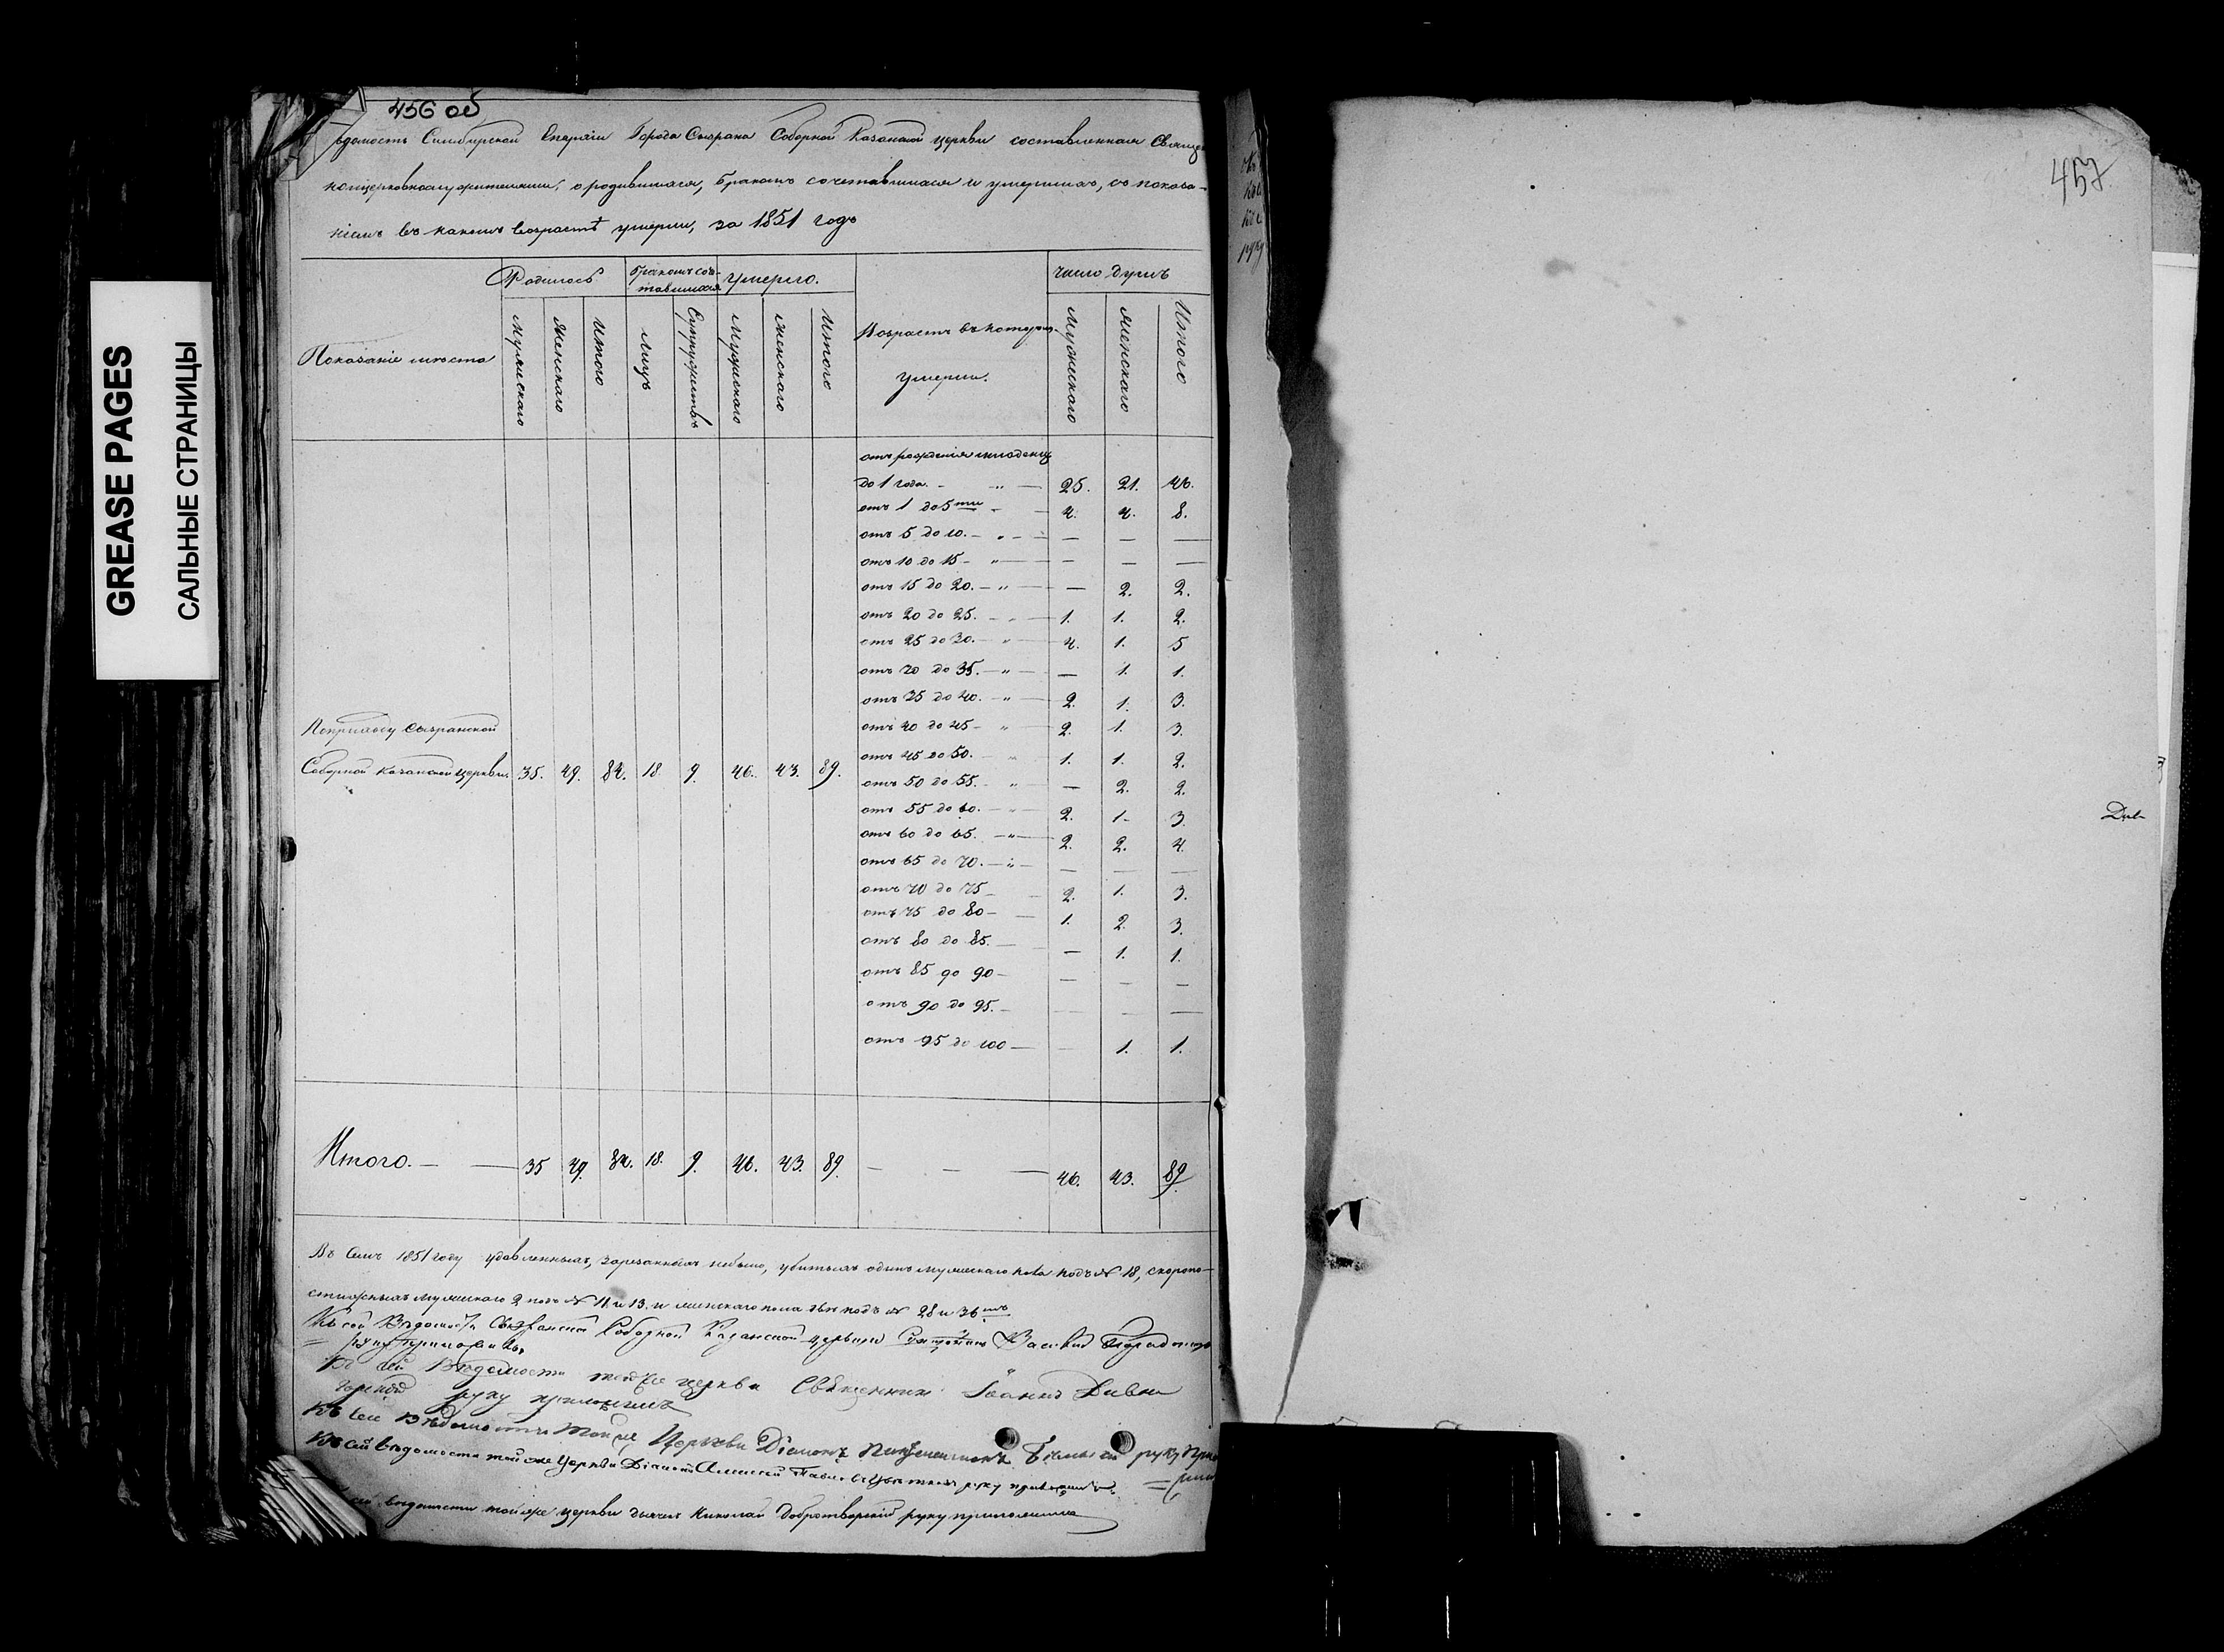 GREASE PAGES
САЛЬНЫЕ СТРАНИЦЫ
456 об
Вѣдомость Симбирской Епархіи Города Сызрана Соборной Казанской церкви составленная Священ
ноцерковнослужителями, о родившихся, бракомъ сочетавшихся и умершихъ, съ показа-
ніемъ въ какомъ возрастѣ умерли, за 1851 годъ
Показаніе мѣста
Родилось
Мужескаго
Женскаго
Итого
бракомъ соч-
тавшихся
Лицъ
Супружествъ
Умерло.
Мужескаго
Женскаго
Итого
Возрастъ въ котором
умерли.
число душъ
Мужескаго
Женскаго
Итого
отъ рожденія младенц
до 1 года. - " — 25. 21. 46.
отъ 1 до 5ти - — 4. 4. 8.
отъ 5 до 10. — " — — — —
отъ 10 до 15 — " — — — —
отъ 15 до 20. — " — — 2. 2.
отъ 20 до 25. — " — 1. 1. 2.
отъ 25 до 30. — " — 4. 1. 5
отъ 30 до 35. — " — — 1. 1.
отъ 35 до 40. — " — 2. 1. 3.
отъ 40 до 45 — " 2. 1. 3.
отъ 45 до 50. " 1. 1. 2.
отъ 50 до 55. — " — 2. 2.
отъ 55 до 60. — " — 2. 1. 3.
отъ 60 до 65. — " — 2. 2. 4.
отъ 65 до 70. — " — — — —
отъ 70 до 75 — 2. 1. 3.
отъ 75 до 80 — 1. 2. 3.
отъ 80 до 85. — — 1. 1.
отъ 85 до 90 — — — —
отъ 90 до 95. — — — —
отъ 95 до 100 — — 1. 1.
По приходу Сызранской
Соборной Казанской церкви. 35. 49. 84. 18. 9. 46. 43. 89.
Итого. — — 35 49. 84. 18. 9. 46. 43. 89. — — — 46. 43. 89.
Въ семъ 1851 году удавленныхъ, зарезанныхъ небыло, убитыхъ одинъ мужескаго пола подъ № 18, скоропо-
стижныхъ мужескаго 2 подъ № 11 и 13. и женскаго пола две подъ № 28 и 36мъ
Къ сей Вѣдомости Сызранской Соборной Казанской церкви Василий
= руку приложилъ
Къ сей Вѣдомости тойже церкви Священникъ Іоаннъ Дивно
горскій руку приложилъ
Къ сей Вѣдомости Тойже Церкви Діаконъ руку Прило
= жил
Къ сей вѣдомости той же Церкви Алексѣй руку приложилъ.
сей вѣдомости тойже церкви дьячекъ Николай Добротворскій руку приложилъ
457
Див